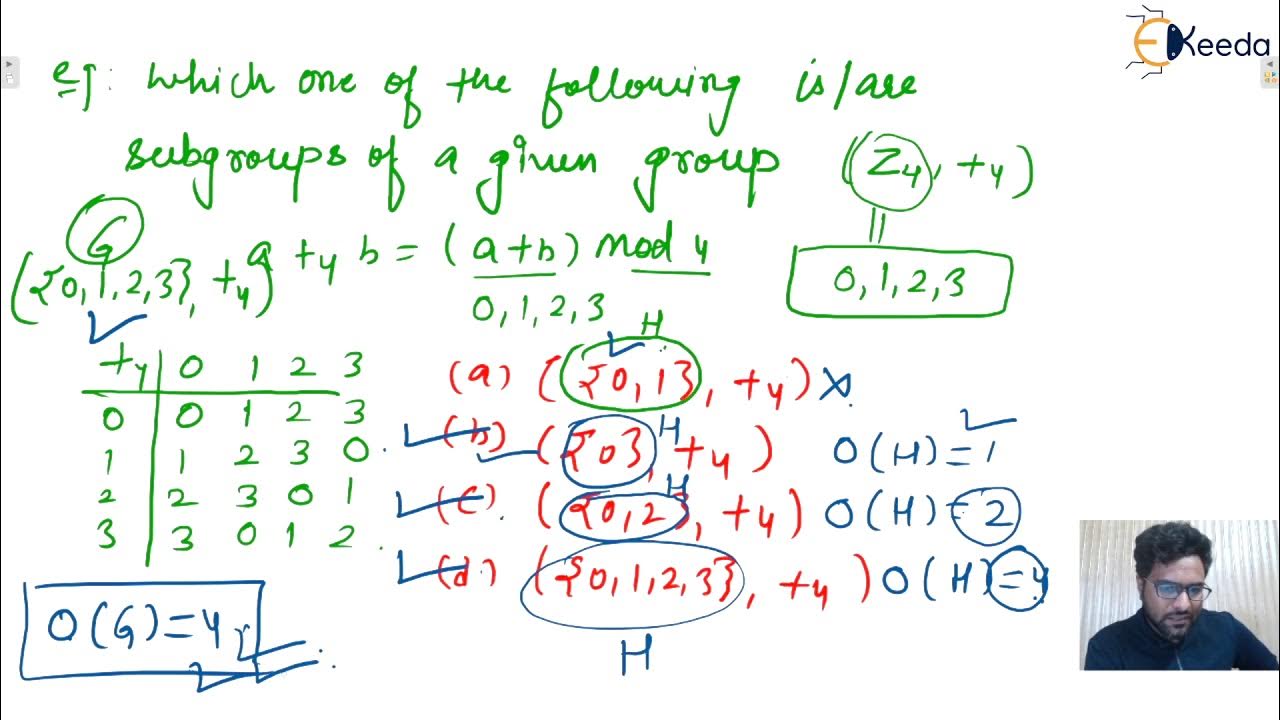 EKeeda
eg: which one of the following is/are
subgroups of a given group (Z4, +4)
G
({0,1,2,3}, +4)
a +4 b = (a+b) mod 4
0, 1, 2, 3
||
0, 1, 2, 3
+4 0 1 2 3
0 0 1 2 3
1 1 2 3 0
2 2 3 0 1
3 3 0 1 2
H
(a) ({0,1}, +4) ×
(b) ({0}, +4) H O(H)=1
(c) ({0,2}, +4) H O(H)=2
(d) ({0,1,2,3}, +4) O(H)=4
H
O(G)=4